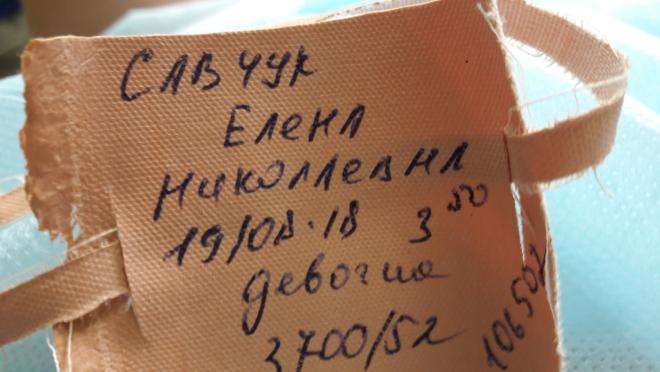 САВЧУК
Елена
Николаевна
19/08.18 3 50
девочка
3700/52
106502